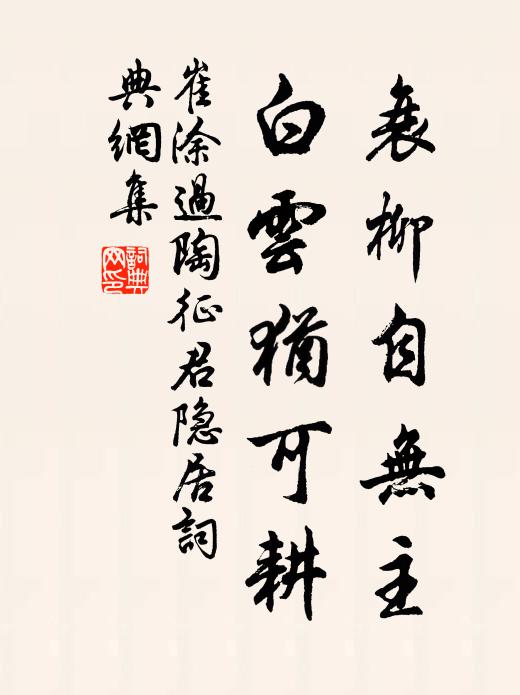 衰柳自無主
白雲猶可耕
崔涂過陶征君隐居詞
典網集
詞典網印